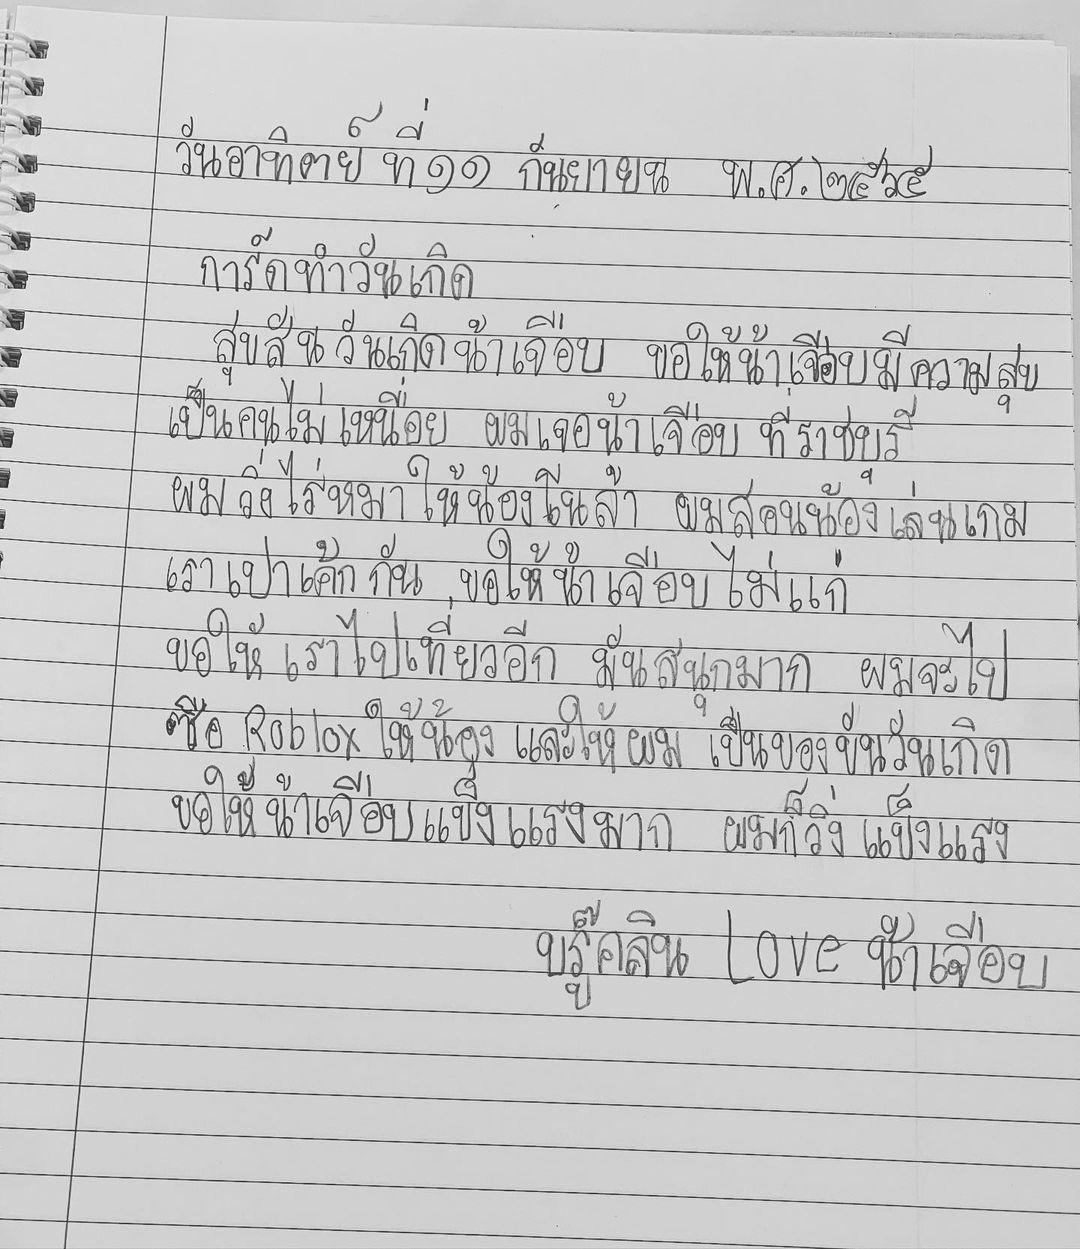 วันอาทิตย์ ที่ ที่๑๑ กันยายน พ.ศ.๒๕๖๕
การ์ดทำวันเกิด
สุ่ขสันวันเกิดน้าเจือบ ขอให้น้าเจือบมีความสุข
เป็นคนไม่เหนื่อย ผมเจอน้าเจือบ ที่ราชบุรี
ผมวิ่งไร่หมาให้น้องโนล้า ผมสอนน้องเล่นเกม
เราเป่าเค้กกัน ขอให้น้าเจือบไม่แก่
ขอให้เราไปเที่ยวอีก มันสนุกมาก ผมจะไป
ซือ Roblox ให้น้อง และให้ผม เป็นของขันวันเกิด
ขอให้น้าเจือบแข็งแรงมาก ผมก็วิ่งแข็งแรง
บรุ๊คลิน Love น้าเจือบ